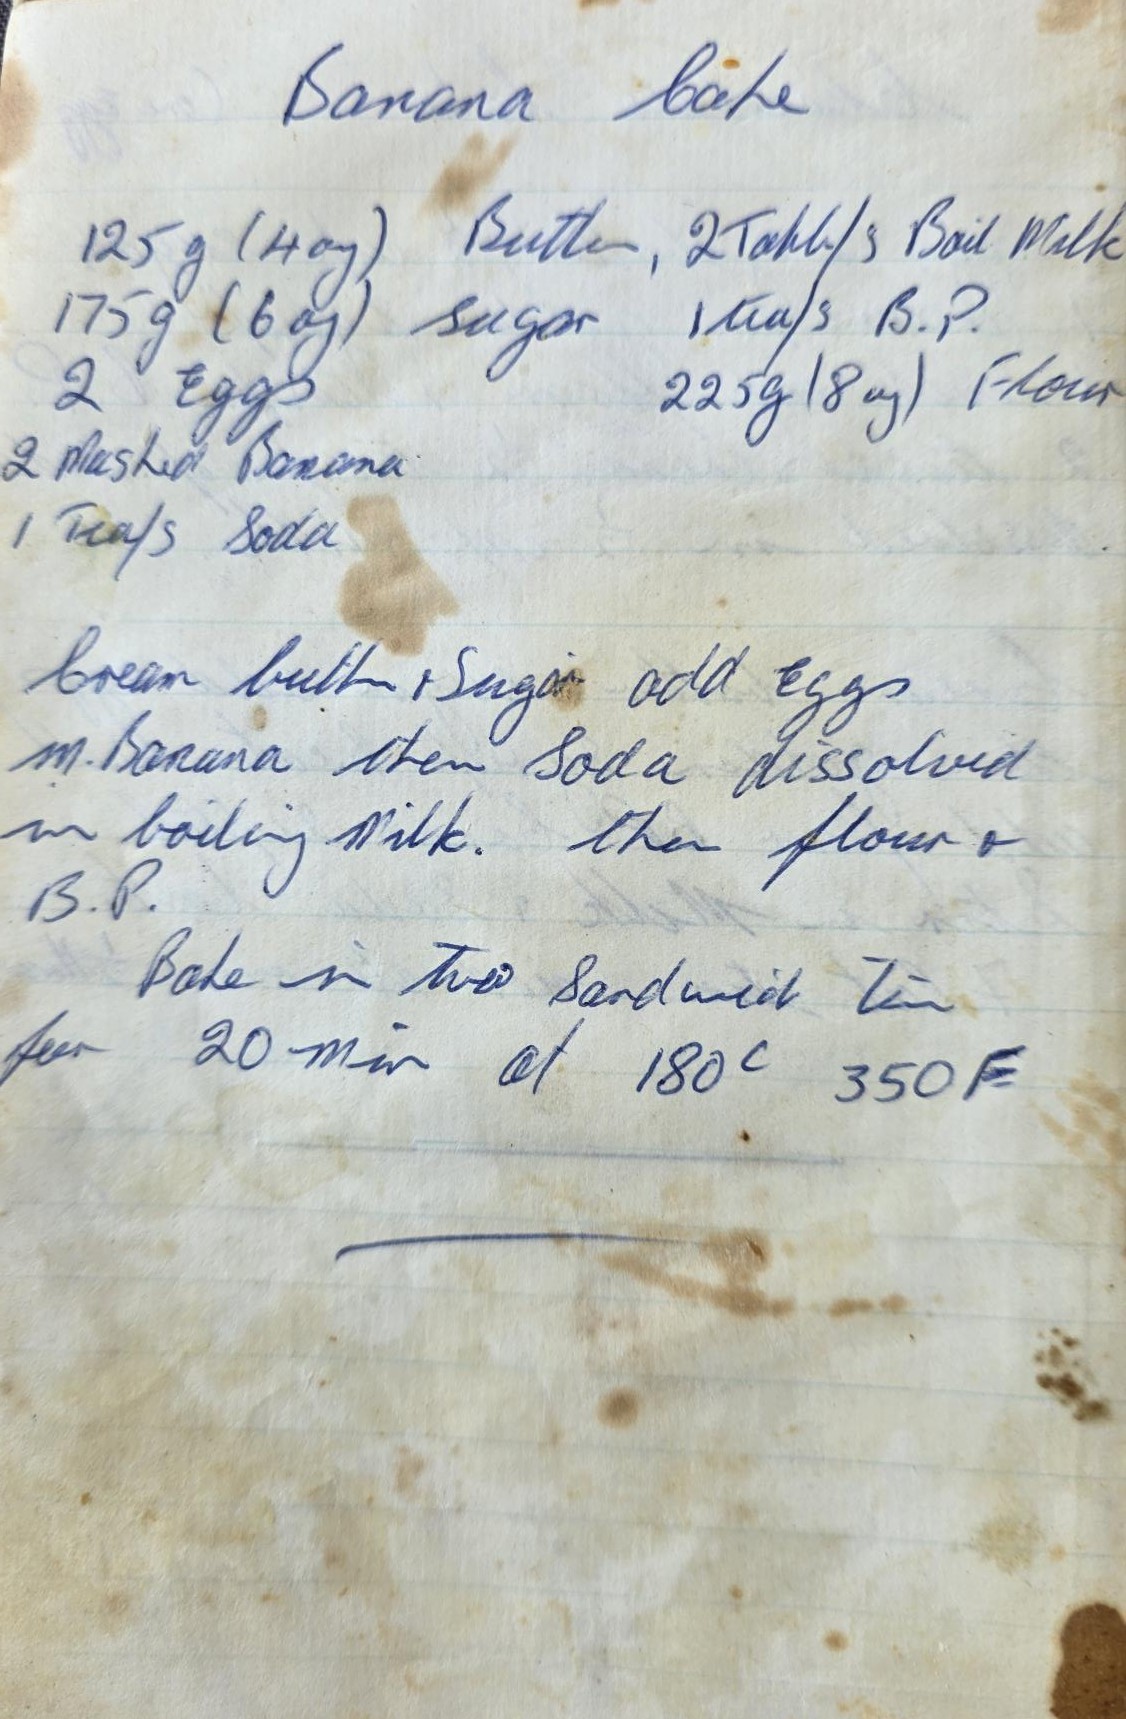 Banana Cake
125g (4oz) Butter, 2 Tabl/s Boil Milk
175g (6oz) sugar 1 tea/s B.P.
2 Eggs 225g (8oz) Flour
2 Mashed Banana
1 Tea/s Soda
Cream butter & Sugar add Eggs
m. Banana then Soda dissolved
in boiling Milk. then flour &
B.P.
Bake in two Sandwich Tin
for 20 min at 180c 350F